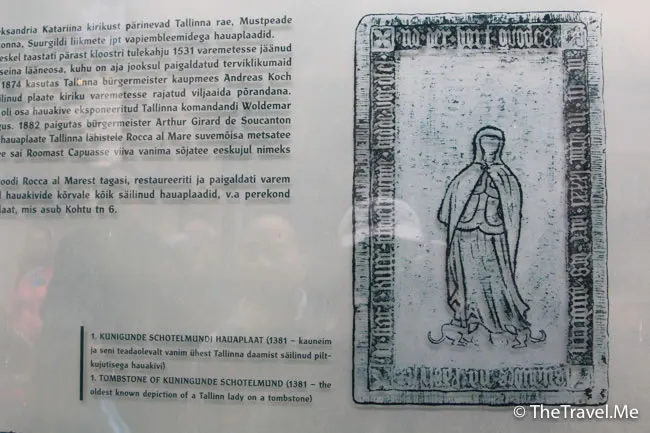 eksandria Katariina kirikust pärinevad Tallinna rae, Mustpeade
onna, Suurgildi liikmete jpt vapiembleemidega hauaplaadid.
eskel taastati pärast kloostri tulekahju 1531 varemetesse jäänud
seina lääneosa, kuhu on aja jooksul paigaldatud terviklikumaid
1874 kasutas Tallinna bürgermeister kaupmees Andreas Koch
ilinud plaate kiriku varemetesse rajatud viljaaida põrandana.
oli osa hauakive eksponeeritud Tallinna komandandi Woldemar
gus. 1882 paigutas bürgermeister Arthur Girard de Soucanton
hauaplaate Tallinna lähistele Rocca al Mare suvemõisa metsatee
e sai Roomast Capuasse viiva vanima sõjatee eeskujul nimeks
oodi Rocca al Marest tagasi, restaureeriti ja paigaldati varem
l hauakivide kõrvale kõik säilinud hauaplaadid, v.a perekond
laat, mis asub Kohtu tn 6.
1. KUNIGUNDE SCHOTELMUNDI HAUAPLAAT (1381 – kauneim
ja seni teadaolevalt vanim ühest Tallinna daamist säilinud pilt-
kujutisega hauakivi)
1. TOMBSTONE OF KUNINGUNDE SCHOTELMUND (1381 – the
oldest known depiction of a Tallinn lady on a tombstone)
© TheTravel.Me